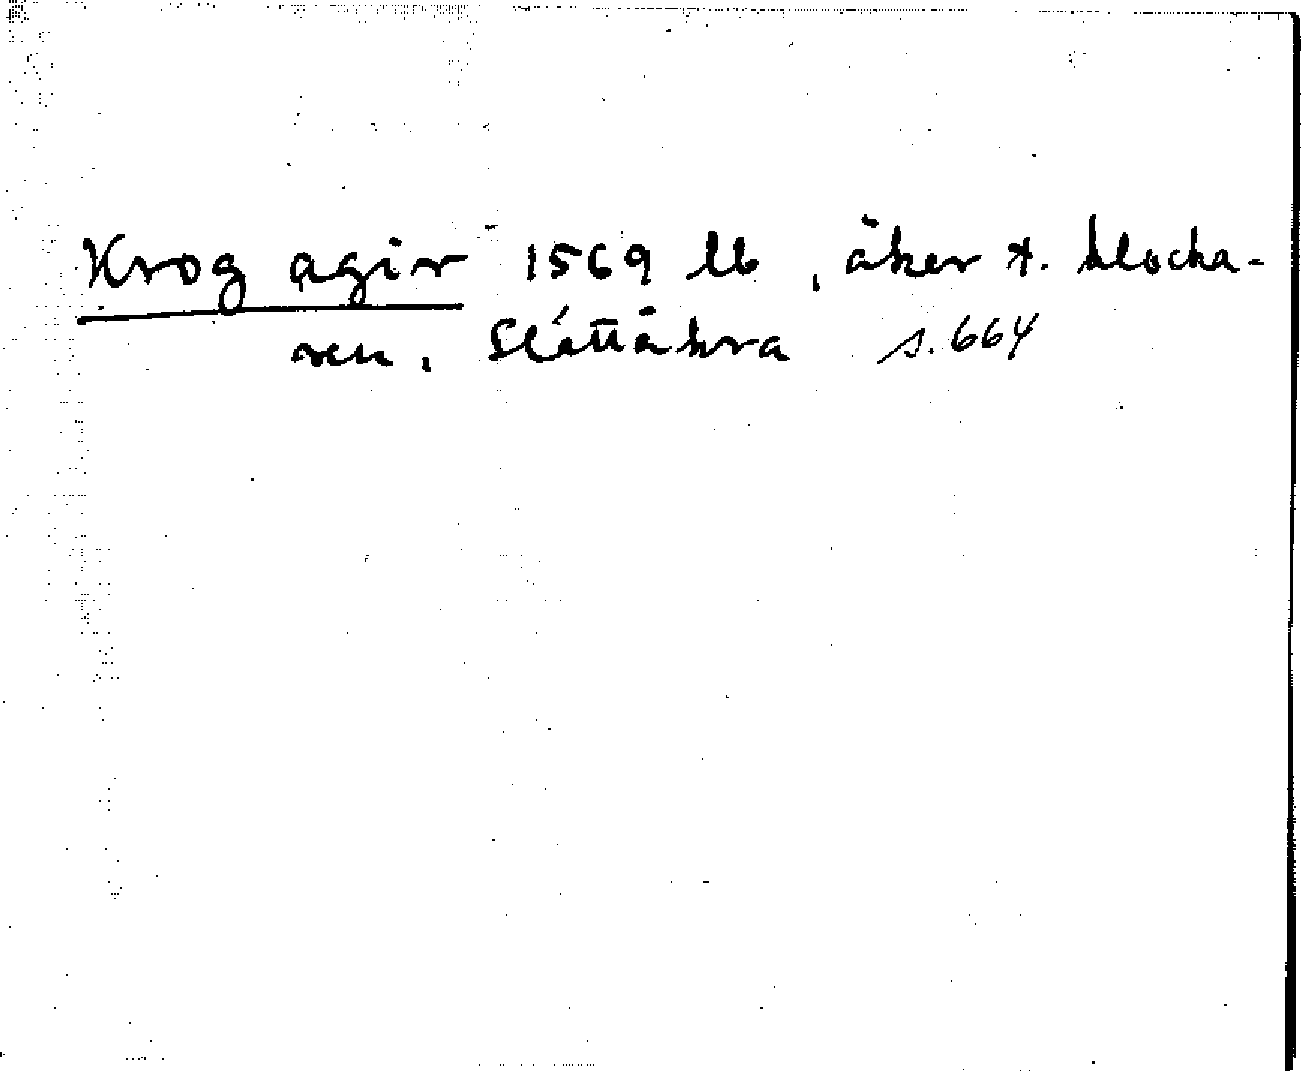 Krog agir 1569 lb, åker t. klocka-
ren, Slättåkra s. 664